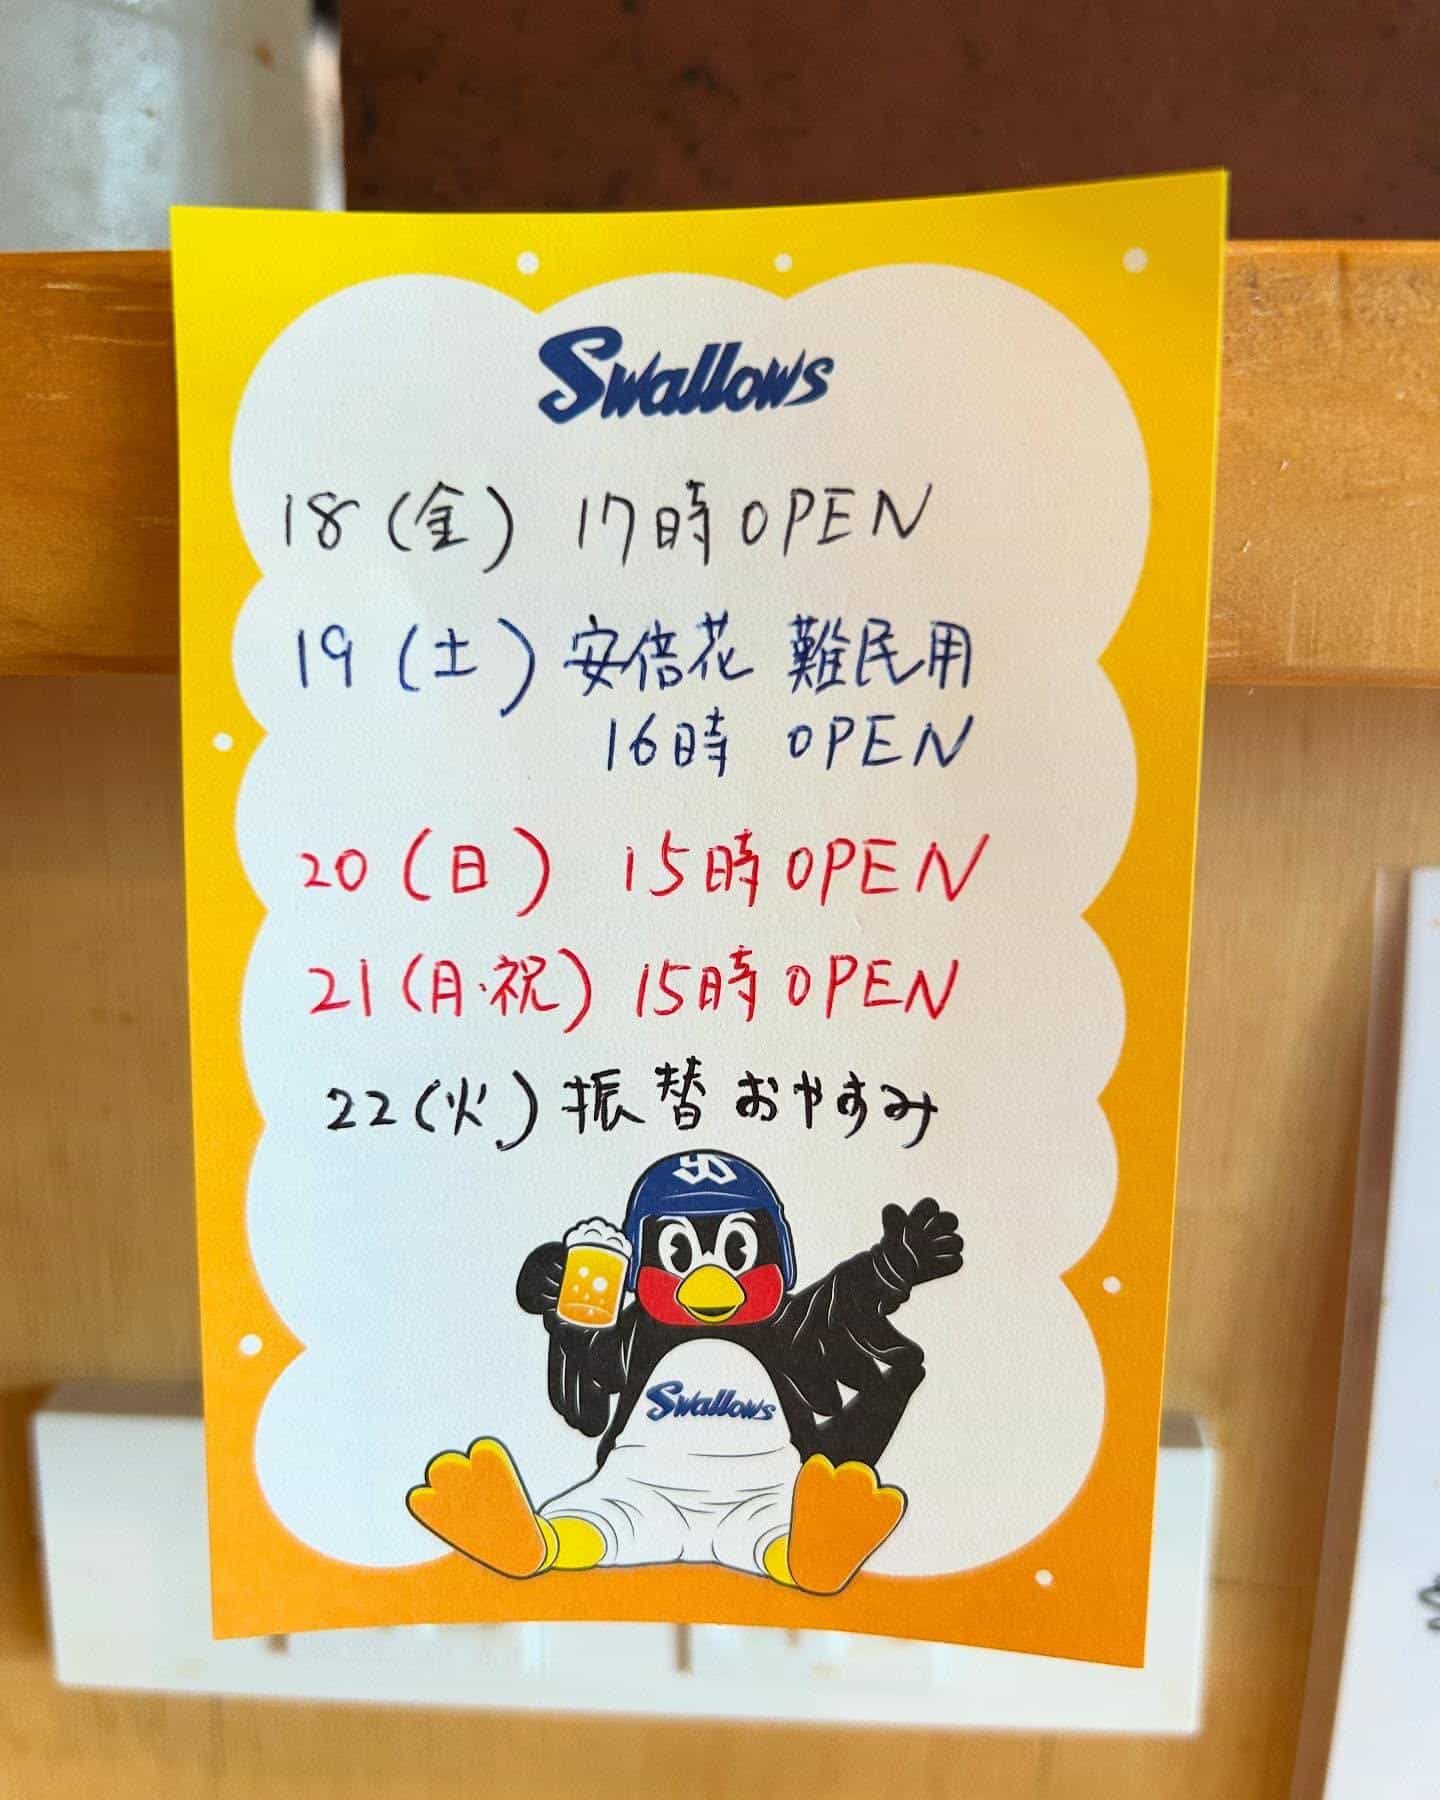 Swallows
18(金) 17時OPEN
19(土)安倍花 難民用
16時 OPEN
20(日) 15時OPEN
21(月・祝) 15時OPEN
22(火)振替おやすみ
Swallows